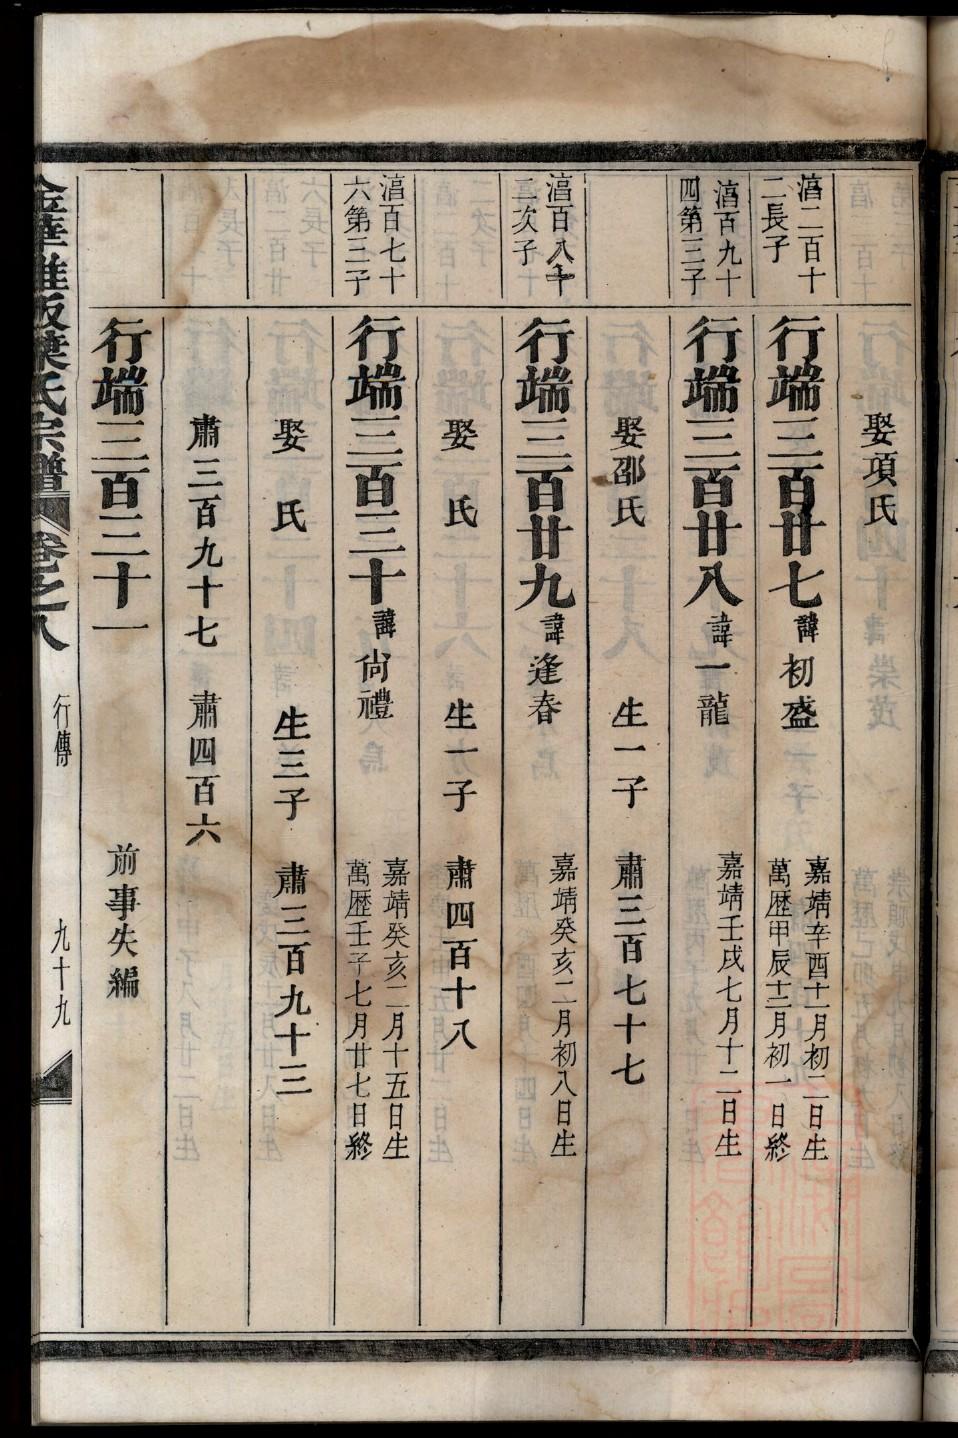 娶項氏
湻二百十
二長子
行端三百廿七 諱初盛 嘉靖辛酉十一月初二日生
萬歴甲辰十二月初一日終
湻百九十
四第三子
行端三百廿八 諱一龍 嘉靖壬戌七月十二日生
娶邵氏 生一子 肅三百七十七
湻百八十
二次子
行端三百廿九 諱逢春 嘉靖癸亥二月初八日生
娶 氏 生一子 肅四百十八
湻百七十
六第三子
行端三百三十 諱尙禮 嘉靖癸亥二月十五日生
萬歴壬子七月廿七日終
娶 氏 生三子 肅三百九十三
肅三百九十七 肅四百六
行端三百三十一 前事失編
葉氏宗譜 卷之八 行傳 九十九